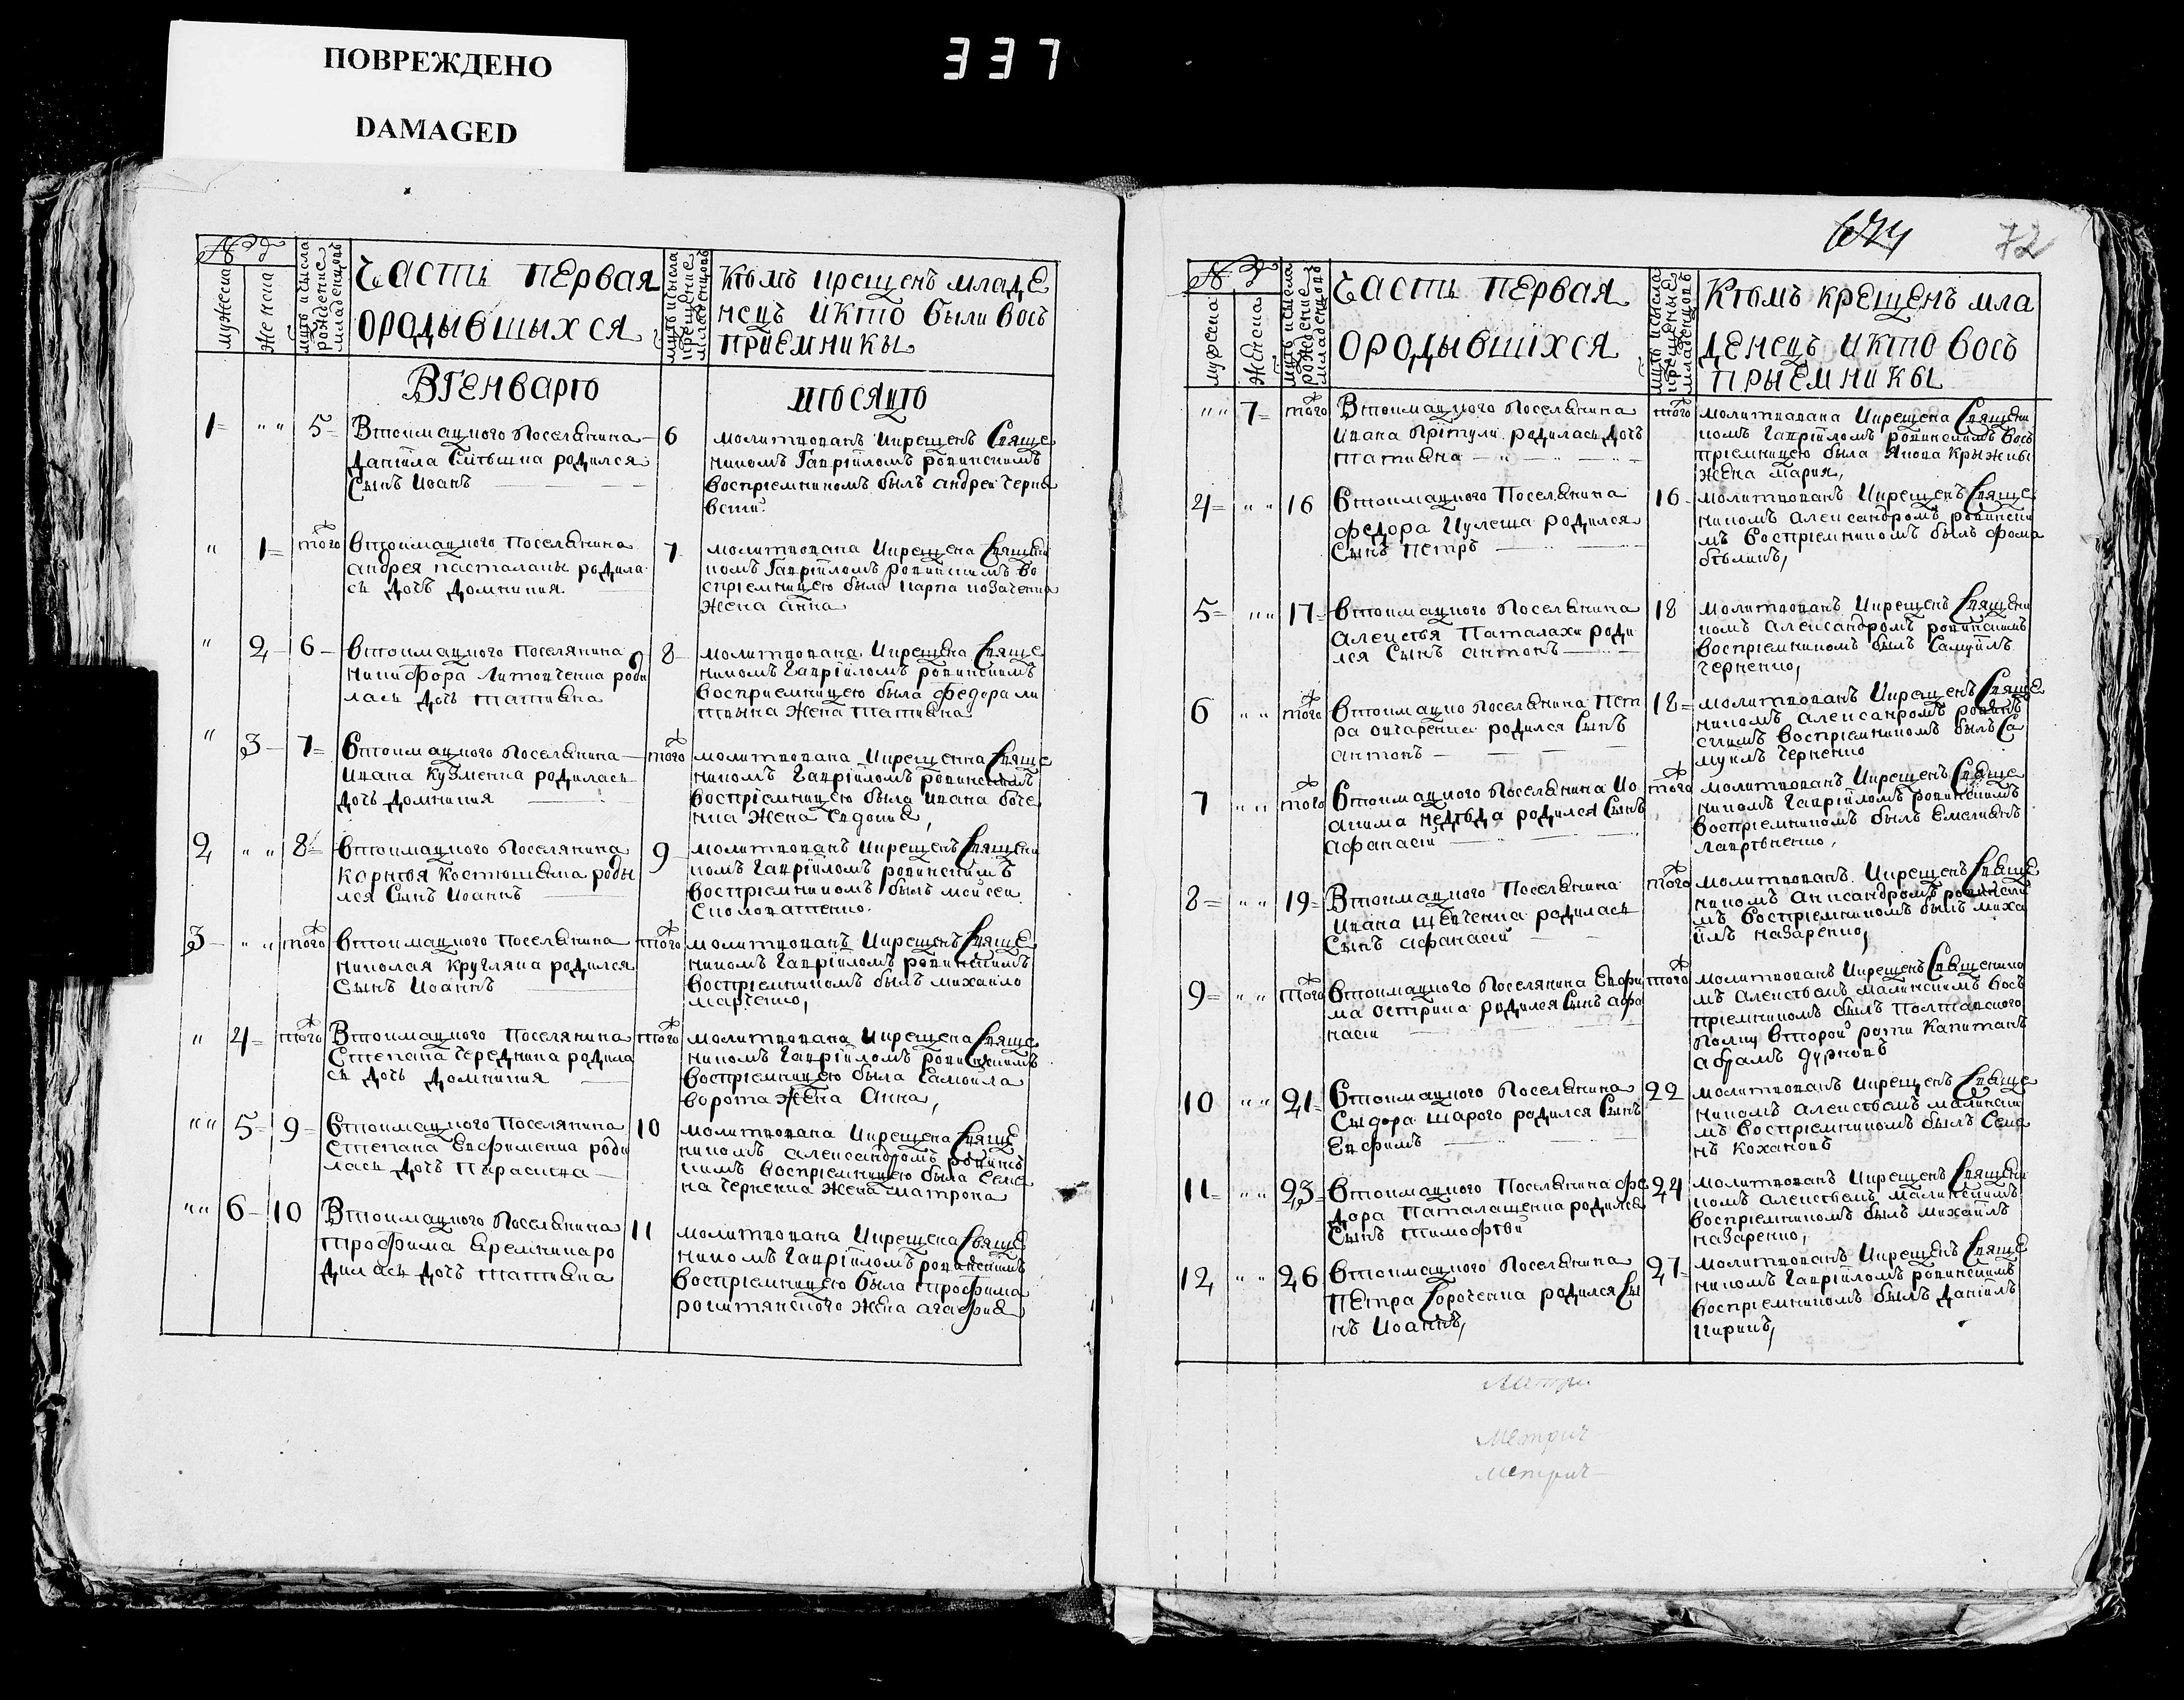 ПОВРЕЖДЕНО
DAMAGED
337
мужеска
женска
рождение
младенцовъ
Часть первая
ородывшыхся
мць ичысла
крещение
младенцовъ
Кѣмъ крещенъ младе
нецъ икто были вось
приемники
Вгенварѣ
мѣсяцѣ
1 " " 5 6
Втоимацкого поселянина
родился
Сынъ Иоанъ
молитвованъ икрещенъ Свяще
никомъ Гавріиломъ ровинскимъ
воспріемникомъ былъ андрей черня
" 1 того 7
втоимацкого поселянина
андрея пасталаки родила
сь дочь домникия
молитвована икрещена Священ
икомъ Гавріиломъ ровинскимъ во
спріемницею была карпа козаченка
жена анна
" 2 6 8
втоимацкого поселянина
никифора литовченка роди
лась дочь татияна
молитвована икрещена Свяще
никомъ Гавріиломъ ровинскимъ
восприемницею была федора ли
твына жена татияна
" 3 7 того
втоимацкого поселянина
ивана кузменка родилась
дочь домникия
молитвована икрещенна Свяще
никомъ Гавріиломъ ровинскимъ
воспріемницею была ивана боче
нка жена
2 " " 8 9
втоимацкого поселянина
корнѣя костюшенка роды
лся Сынъ Иоаннъ
молитвованъ икрещенъ Священ
икомъ Гавріиломъ ровинскимъ
воспріемникомъ былъ мойсеи
сколопатенко
3 " " того того
втоимацкого поселянина
николая кругляка родился
Сынъ Иоаннъ
молитвованъ икрещенъ Свяще
никомъ Гавріиломъ ровинскимъ
воспріемникомъ былъ михаило
марченко,
" 4 того того
Втоимацкого поселянина
Степана Чередника родила
сь дочь домникия
молитвована икрещена Свяще
никомъ Гавріиломъ ровинскимъ
воспріемницею была Самоила
ворота жена Анна,
" " 5 9 10
втоимацкого поселянина
Степана Евфименка роди
лась дочь Параскева
молитвована икрещена Свяще
никомъ александромъ ровинъ
скимъ воспріемницею была Семе
на черненка жена матрона
" " 6 10 11
Втоимацкого поселянина
трофима Еремкина ро
дилась дочь татияна
молитвована икрещена Свяще
никомъ Гавріиломъ ровинскимъ
воспріемницею была трофима
рокитянского жена агафия
72
мужеска
женска
мць ичысла
рождение
младенцовъ
Часть первая
ородывшихся
мць ичысла
крещение
младенцовъ
Кѣмъ крещенъ мла
денецъ икто вось
прыемникы
" " 7 того того
Втоимацкого поселянина
ивана притули родилась дочь
татияна
молитвована икрещена Священ
икомъ Гавріиломъ ровинскимъ вось
пріемницею была якова
жена мария,
4 " " 16 16
втоимацкого поселянина
федора кулеша родился
Сынъ петръ
молитвованъ икрещенъ Свяще
никомъ александромъ ровински
мъ воспріемникомъ былъ фома
бѣликъ,
5 " " 17 18
втоимацкого поселянина
алексѣя Паталахи роди
лся Сынъ антонъ
молитвованъ икрещенъ Священ
икомъ александромъ ровинскимъ
воспріемникомъ былъ Самуилъ
черненко,
6 " " того 18
втоимацко поселянина Пет
ра овчаренка родился Сынъ
антонъ
молитвованъ икрещенъ Свяще
никомъ алексанромъ ровинъ
скимъ воспріемникомъ былъ Са
муилъ черненко
7 " " того того
втоимацкого поселянина ио
акима недѣда родился Сынъ
афанасій
молитвованъ икрещенъ Свяще
никомъ Гавріиломъ ровинскимъ
воспріемникомъ былъ емелиянъ
лаврѣненко,
8 " " 19 того
Втоимацкого поселянина
ивана шевченка родилась
Сынъ афанасій
молитвованъ икрещенъ Свяще
никомъ алисандромъ ровински
мъ воспріемникомъ былъ миха
илъ назаренко,
9 " " того того
втоимацкого поселянина Евфи
ма острика родился Сынъ афа
насіи
молитвованъ икрещенъ Священико
мъ алексѣемъ малинскимъ вось
пріемникомъ былъ Полтавского
полку второй роти Капитанъ
абрамъ дурновъ
10 " " 21 22
втоимацкого поселянина
Сыдора шарого родился Сынъ
Евфимъ
молитвованъ икрещенъ Свяще
никомъ алексѣемъ малински
мъ воспріемникомъ былъ Семе
нъ кохановъ
11 " " 23 24
втоимацкого поселянина фе
дора Паталащенка родился
Сынъ тимофѣй
молитвованъ икрещенъ Священ
икомъ алексѣемъ малинскимъ
воспріемникомъ былъ михаилъ
назаренко,
12 " " 26 27
втоимацкого поселянина
Петра Сороченка родился Сы
нъ Иоаннъ,
молитвованъ икрещенъ Свяще
никомъ Гавріиломъ ровинскимъ
воспріемникомъ былъ даниилъ
кирикъ,
Метри
Метрич
Метрич